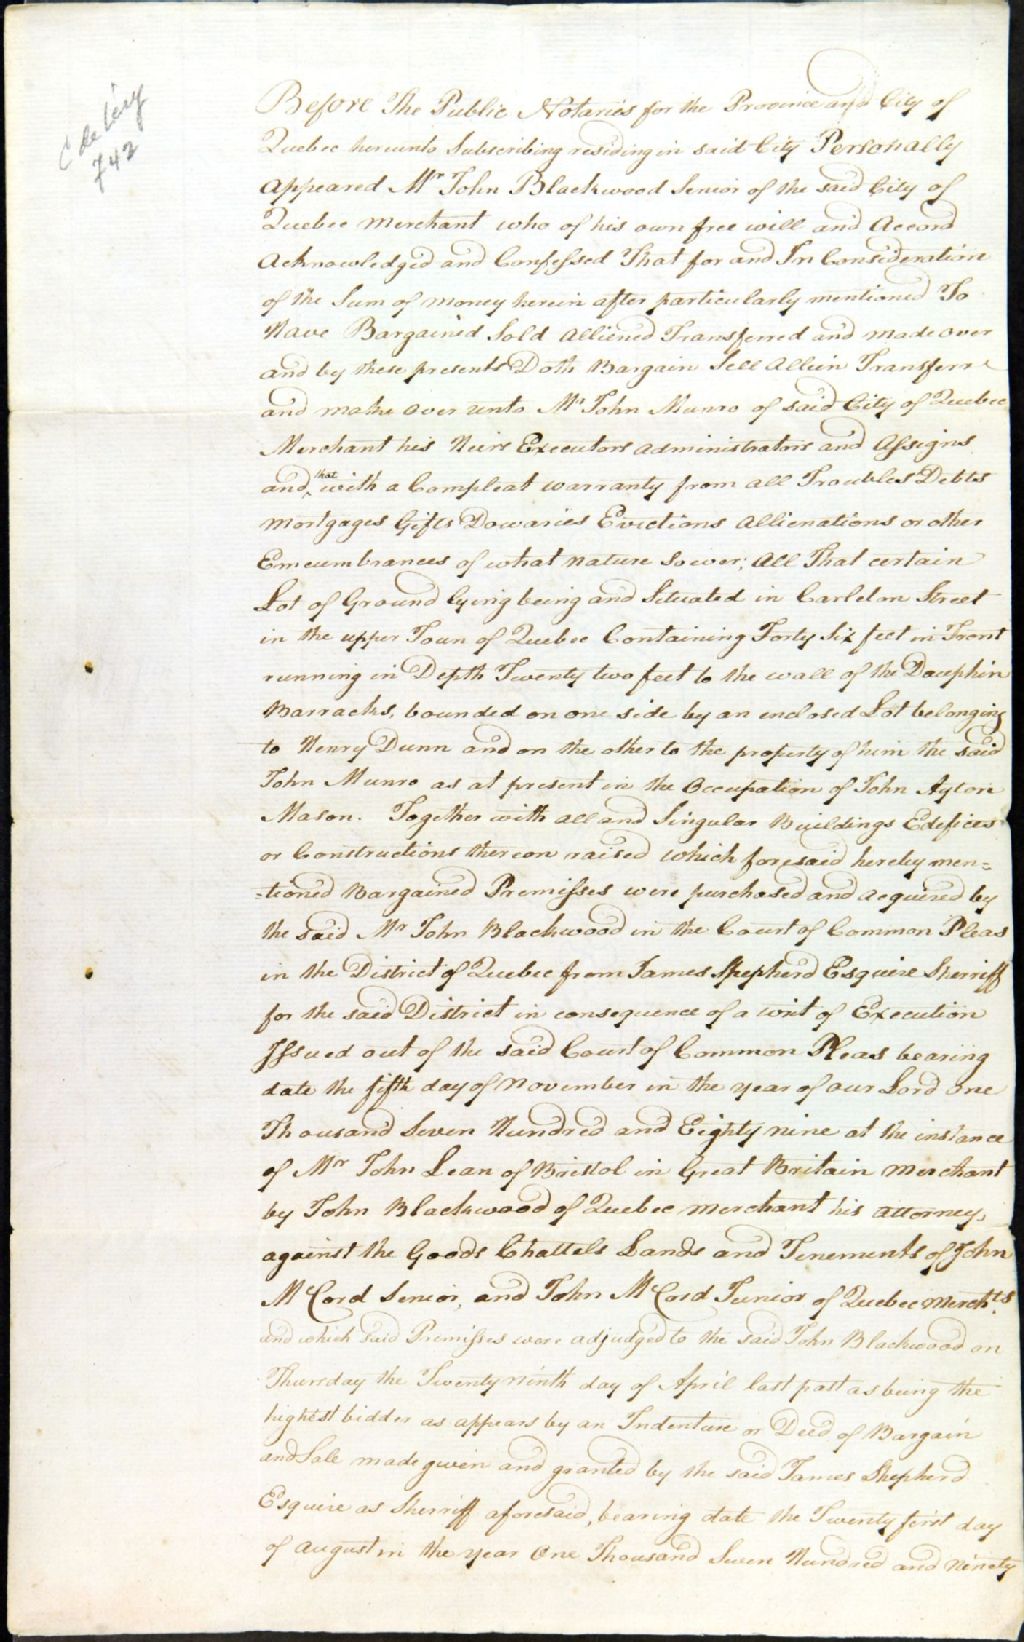 C de Léry
742
Before The Public Notaries for the Province and City of
Quebec hereunto Subscribing residing in said City Personally
appeared Mr John Blackwood Senior of the said City of
Quebec Merchant who of his own free will and Accord
Acknowledged and Confessed That for and In Consideration
of the Sum of money herein after particularly mentioned To
Have Bargained Sold alliened Transferred and made over
and by these presents Doth Bargain Sell Allien Transferr
and make over unto Mr John Munro of said City of Quebec
Merchant his Heirs Executors administrators and Assigns
and that with a Compleat warranty from all Troubles Debts
mortgages Gifts Dowaries Evictions Allienations or other
Emcumbrances of what nature Sower; All That certain
Lot of Ground lying being and Situated in Carleton Street
in the upper Toun of Quebec Containing Forty Six feet in Front
running in Depth Twenty two feet to the wall of the Dauphin
Barracks, bounded on one side by an enclosed Lot belonging
to Henry Dunn and on the other to the property of him the said
John Munro as at present in the Occupation of John Ayton
Mason. Together with all and Singular Buildings Edefices
or Constructions thereon raised which foresaid hereby men=
=tioned Bargained Premisses were purchased and acquired by
the said Mr John Blackwood in the Court of Common Pleas
in the District of Quebec from James Shepherd Esquire Sherriff
for the said District in consequence of a writ of Execution
Issued out of the said Court of Common Pleas bearing
date the fifth day of November in the year of our Lord one
Thousand Seven Hundred and Eighty nine at the instance
of Mr John Lean of Bristol in Great Britain Merchant
by John Blackwood of Quebec merchant his attorney,
against the Goods Chattels Lands and Tenements of John
McCord Senior, and John McCord Junior of Quebec Merchts
and which said Premisses were adjudged to the said John Blackwood on
Thursday the Twenty ninth day of April last past as being the
highest bidder as appears by an Indenture or Deed of Bargain
and Sale made given and granted by the said James Shepherd
Esquire as Sherriff aforesaid, bearing date the Twenty first day
of August in the year One Thousand Seven Hundred and Ninety